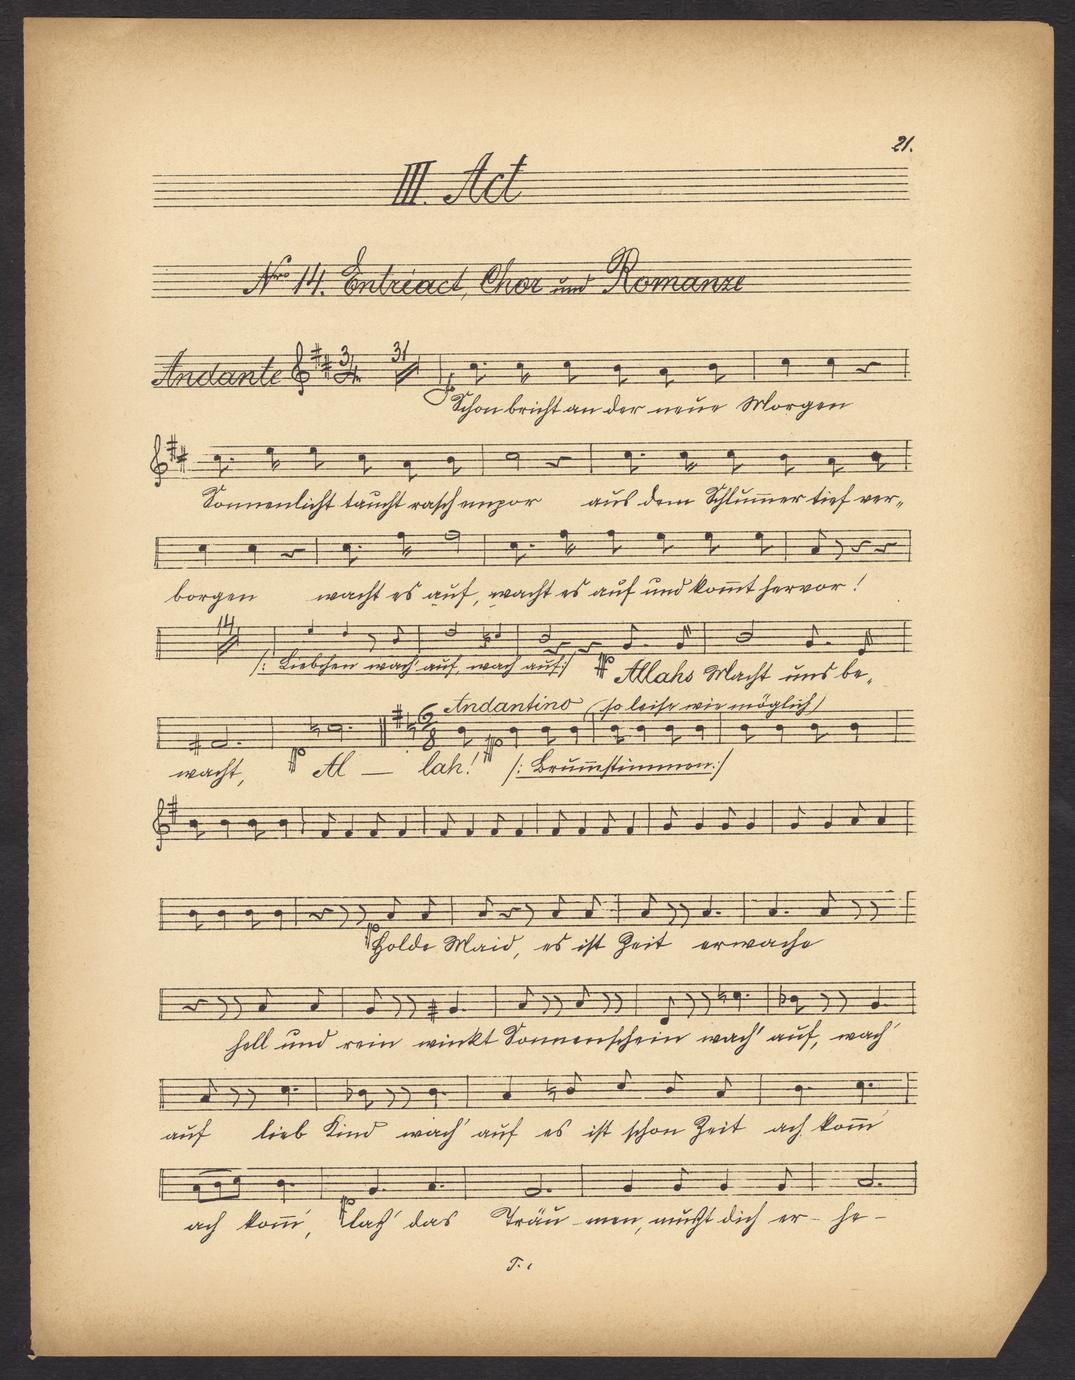 21.
III. Act
Nro 14. Entréact, Chor und Romanze
Andante 3/4 31
Schon bricht an der neue Morgen
Sonnenlicht taucht rasch empor aus dem Schlum̄er tief ver„
borgen wacht es auf, wacht es auf und kom̄t hervor!
14
/: Liebchen wach' auf, wach auf:/ p Allahs Macht uns be„
6/8 Andantino (so leise wie möglich)
wacht, p Al — lah! pp /: Brum̄stimmen:/
p Holde Maid, es ist Zeit erwache
hell und rein winkt Sonnenschein wach' auf, wach'
auf lieb Kind wach' auf es ist schon Zeit ach kom̄'
ach kom̄', p laß' das Träu-men, mußt dich er- he-